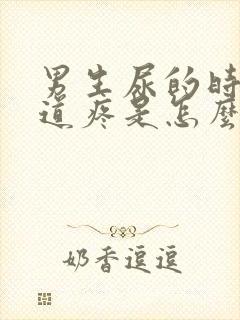 男生尿的時
道疼是怎麼
奶香逗逗